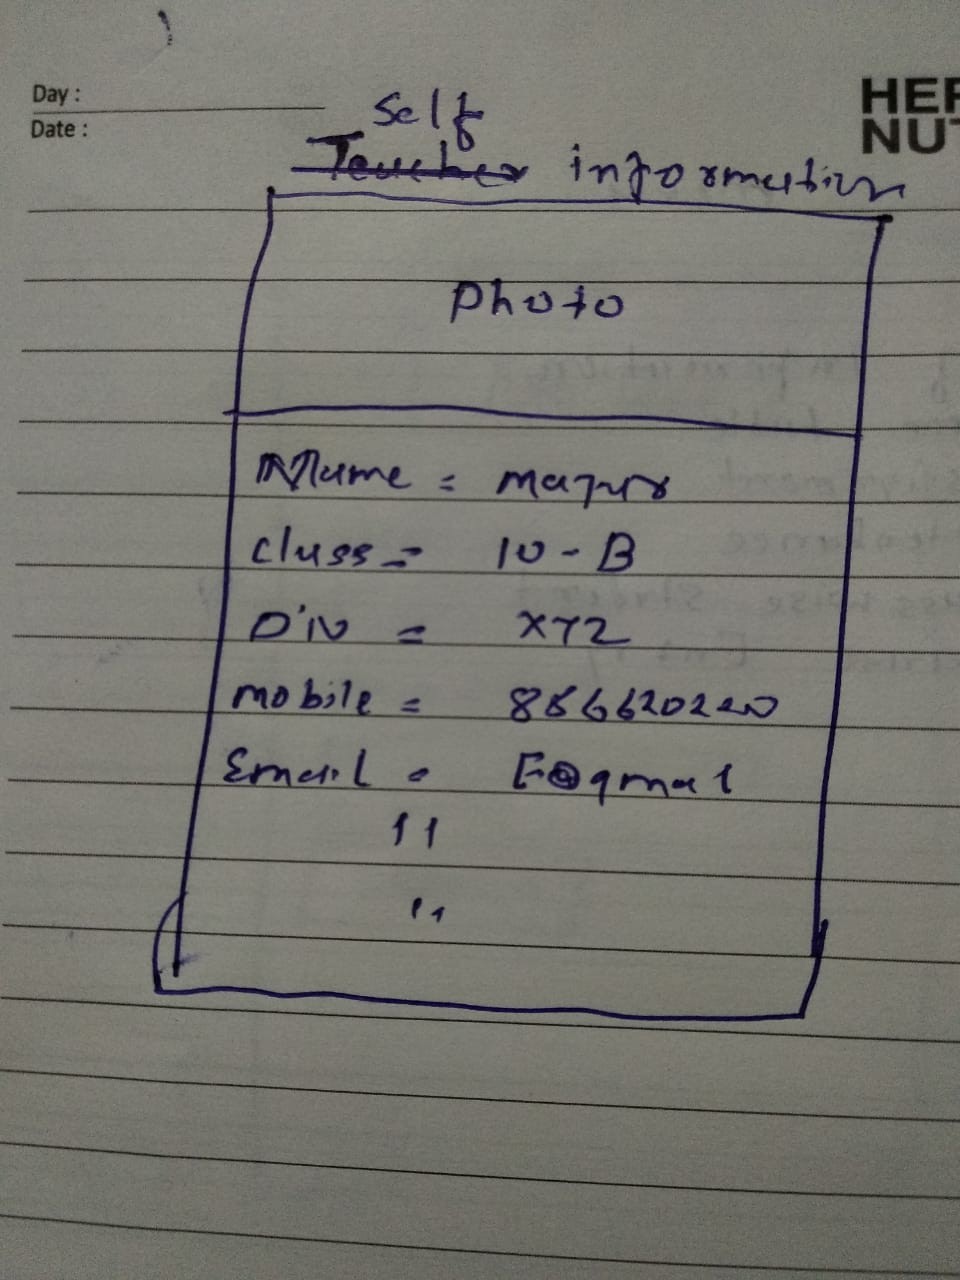 Day :
Date :
HER
NUT
Self
Teacher information
Photo
Name = mayur
class = 10 - B
Div = XYZ
mobile =
Email = E@gmal
11
11